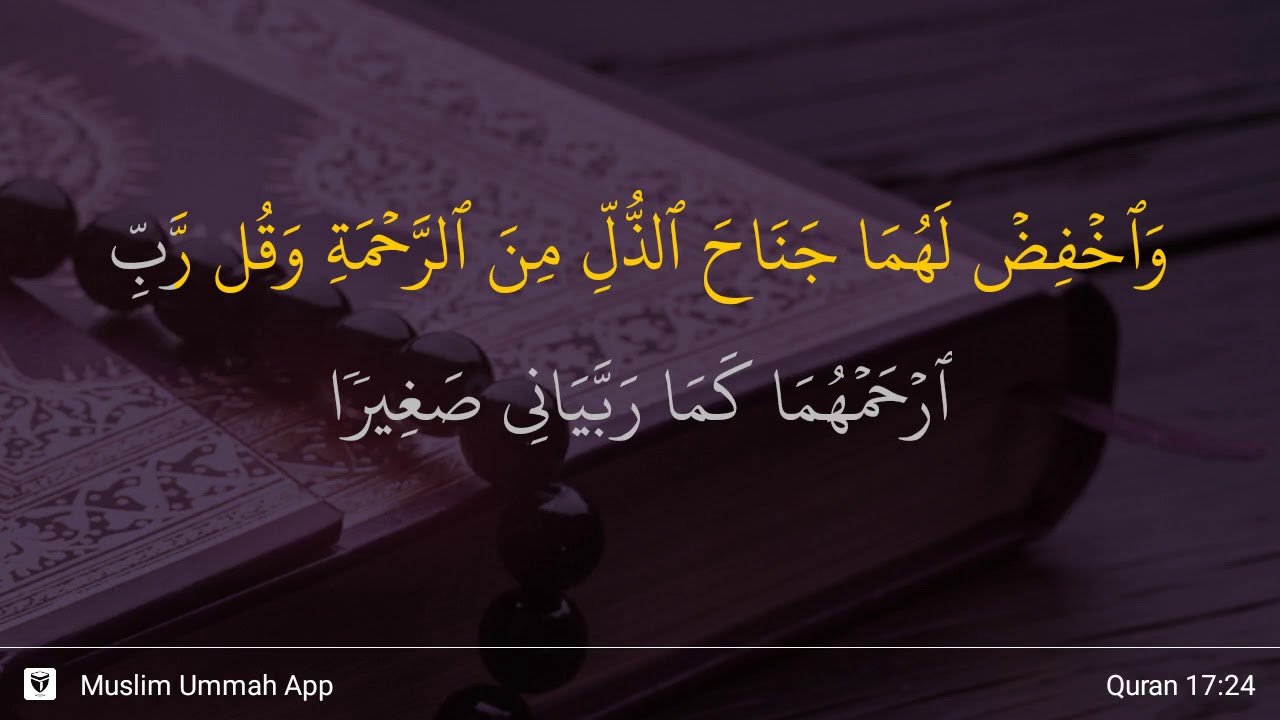 وَٱخۡفِضۡ لَهُمَا جَنَاحَ ٱلذُّلِّ مِنَ ٱلرَّحۡمَةِ وَقُل رَّبِّ
ٱرۡحَمۡهُمَا كَمَا رَبَّيَانِي صَغِيرٗا
Muslim Ummah App
Quran 17:24